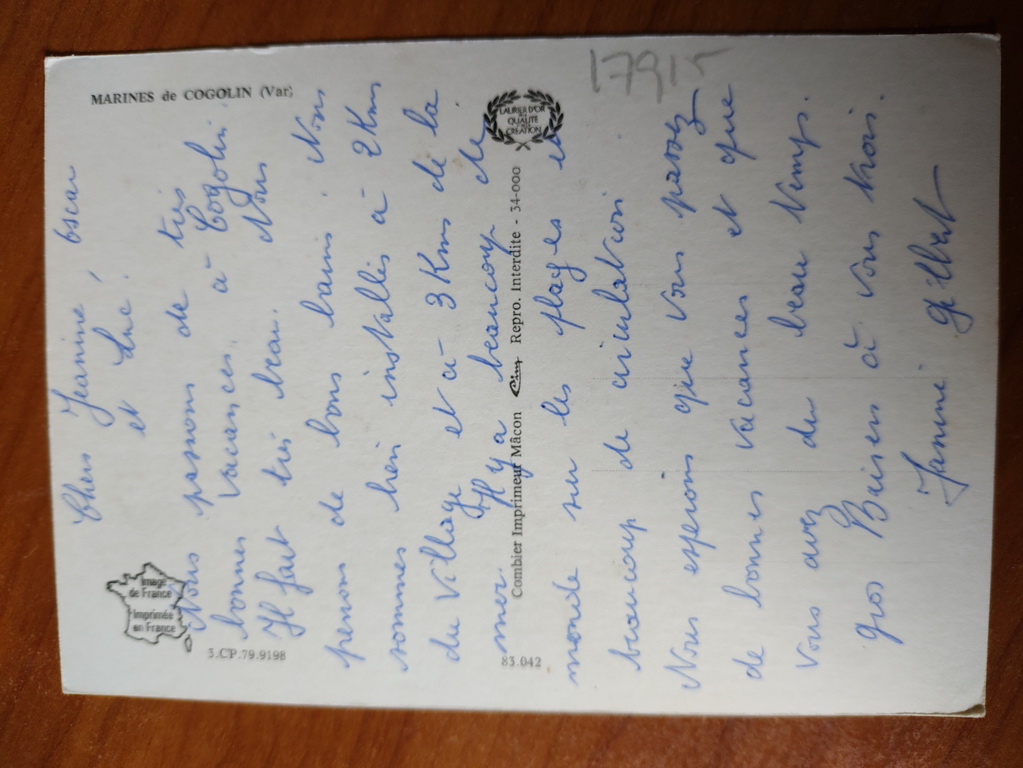 MARINES de COGOLIN (Var)
Image
de France
Imprimée
en France
3.CP.79.9198
Chers Jeannine, Oscar
et Luc.
Nous passons de très
bonnes vacances à Cogolin
Il fait très beau. Nous
prenons de bons bains. Nous
sommes bien installés à 2 Kms
du village et à 3 Kms de la
mer. Il y a beaucoup de
monde sur les plages et
beaucoup de circulation
Nous esperons que vous passez
de bonnes vacances et que
vous avez du beau temps.
gros Baisers à vous trois.
Janine Gilbert
83.042
Combier Imprimeur Mâcon Cim Repro. Interdite - 34-000
LAURIER D'OR
DE LA
QUALITÉ
CRÉATION
17915